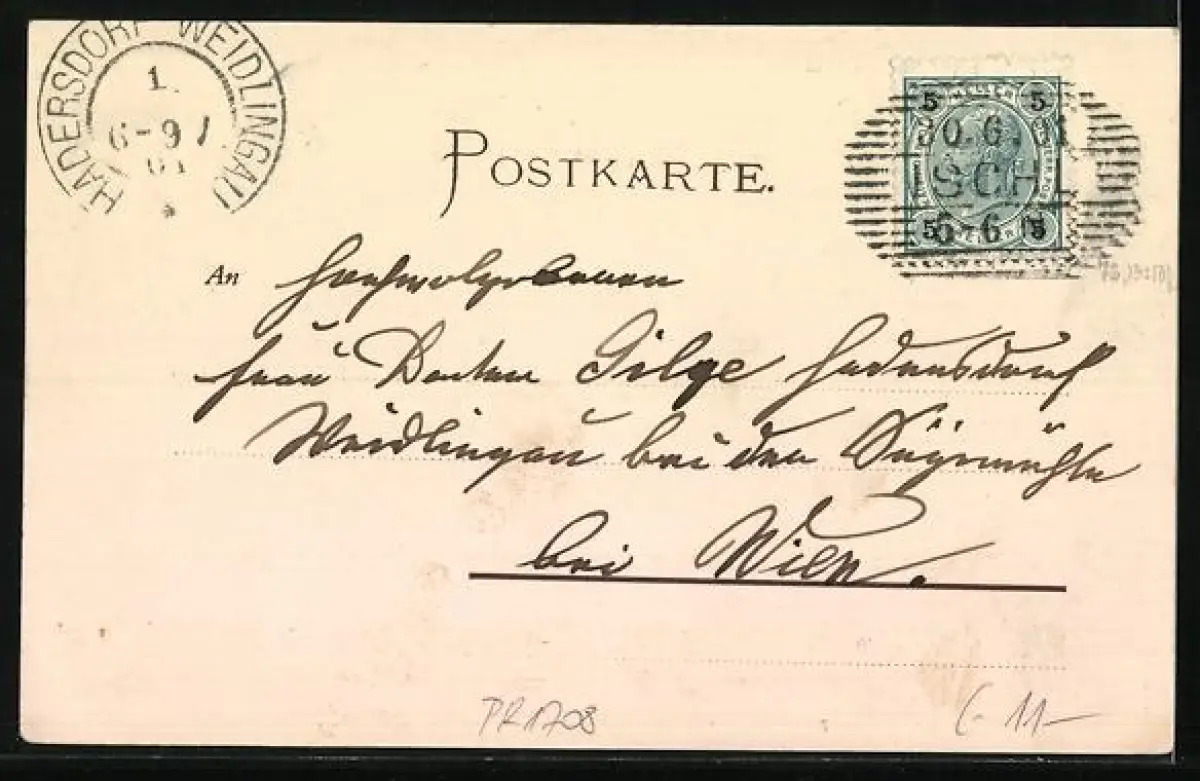 HADERSDORF WEIDLINGAU
1.
6-9
01
POSTKARTE.
5 HELLER 5
30.6.01
ISCHL
5 5
An Hochwolgeborenen
Frau Doctor Gilge Hadersdorf
Weidlingau bei der Sägemühle
bei Wien.
PR1708
11-